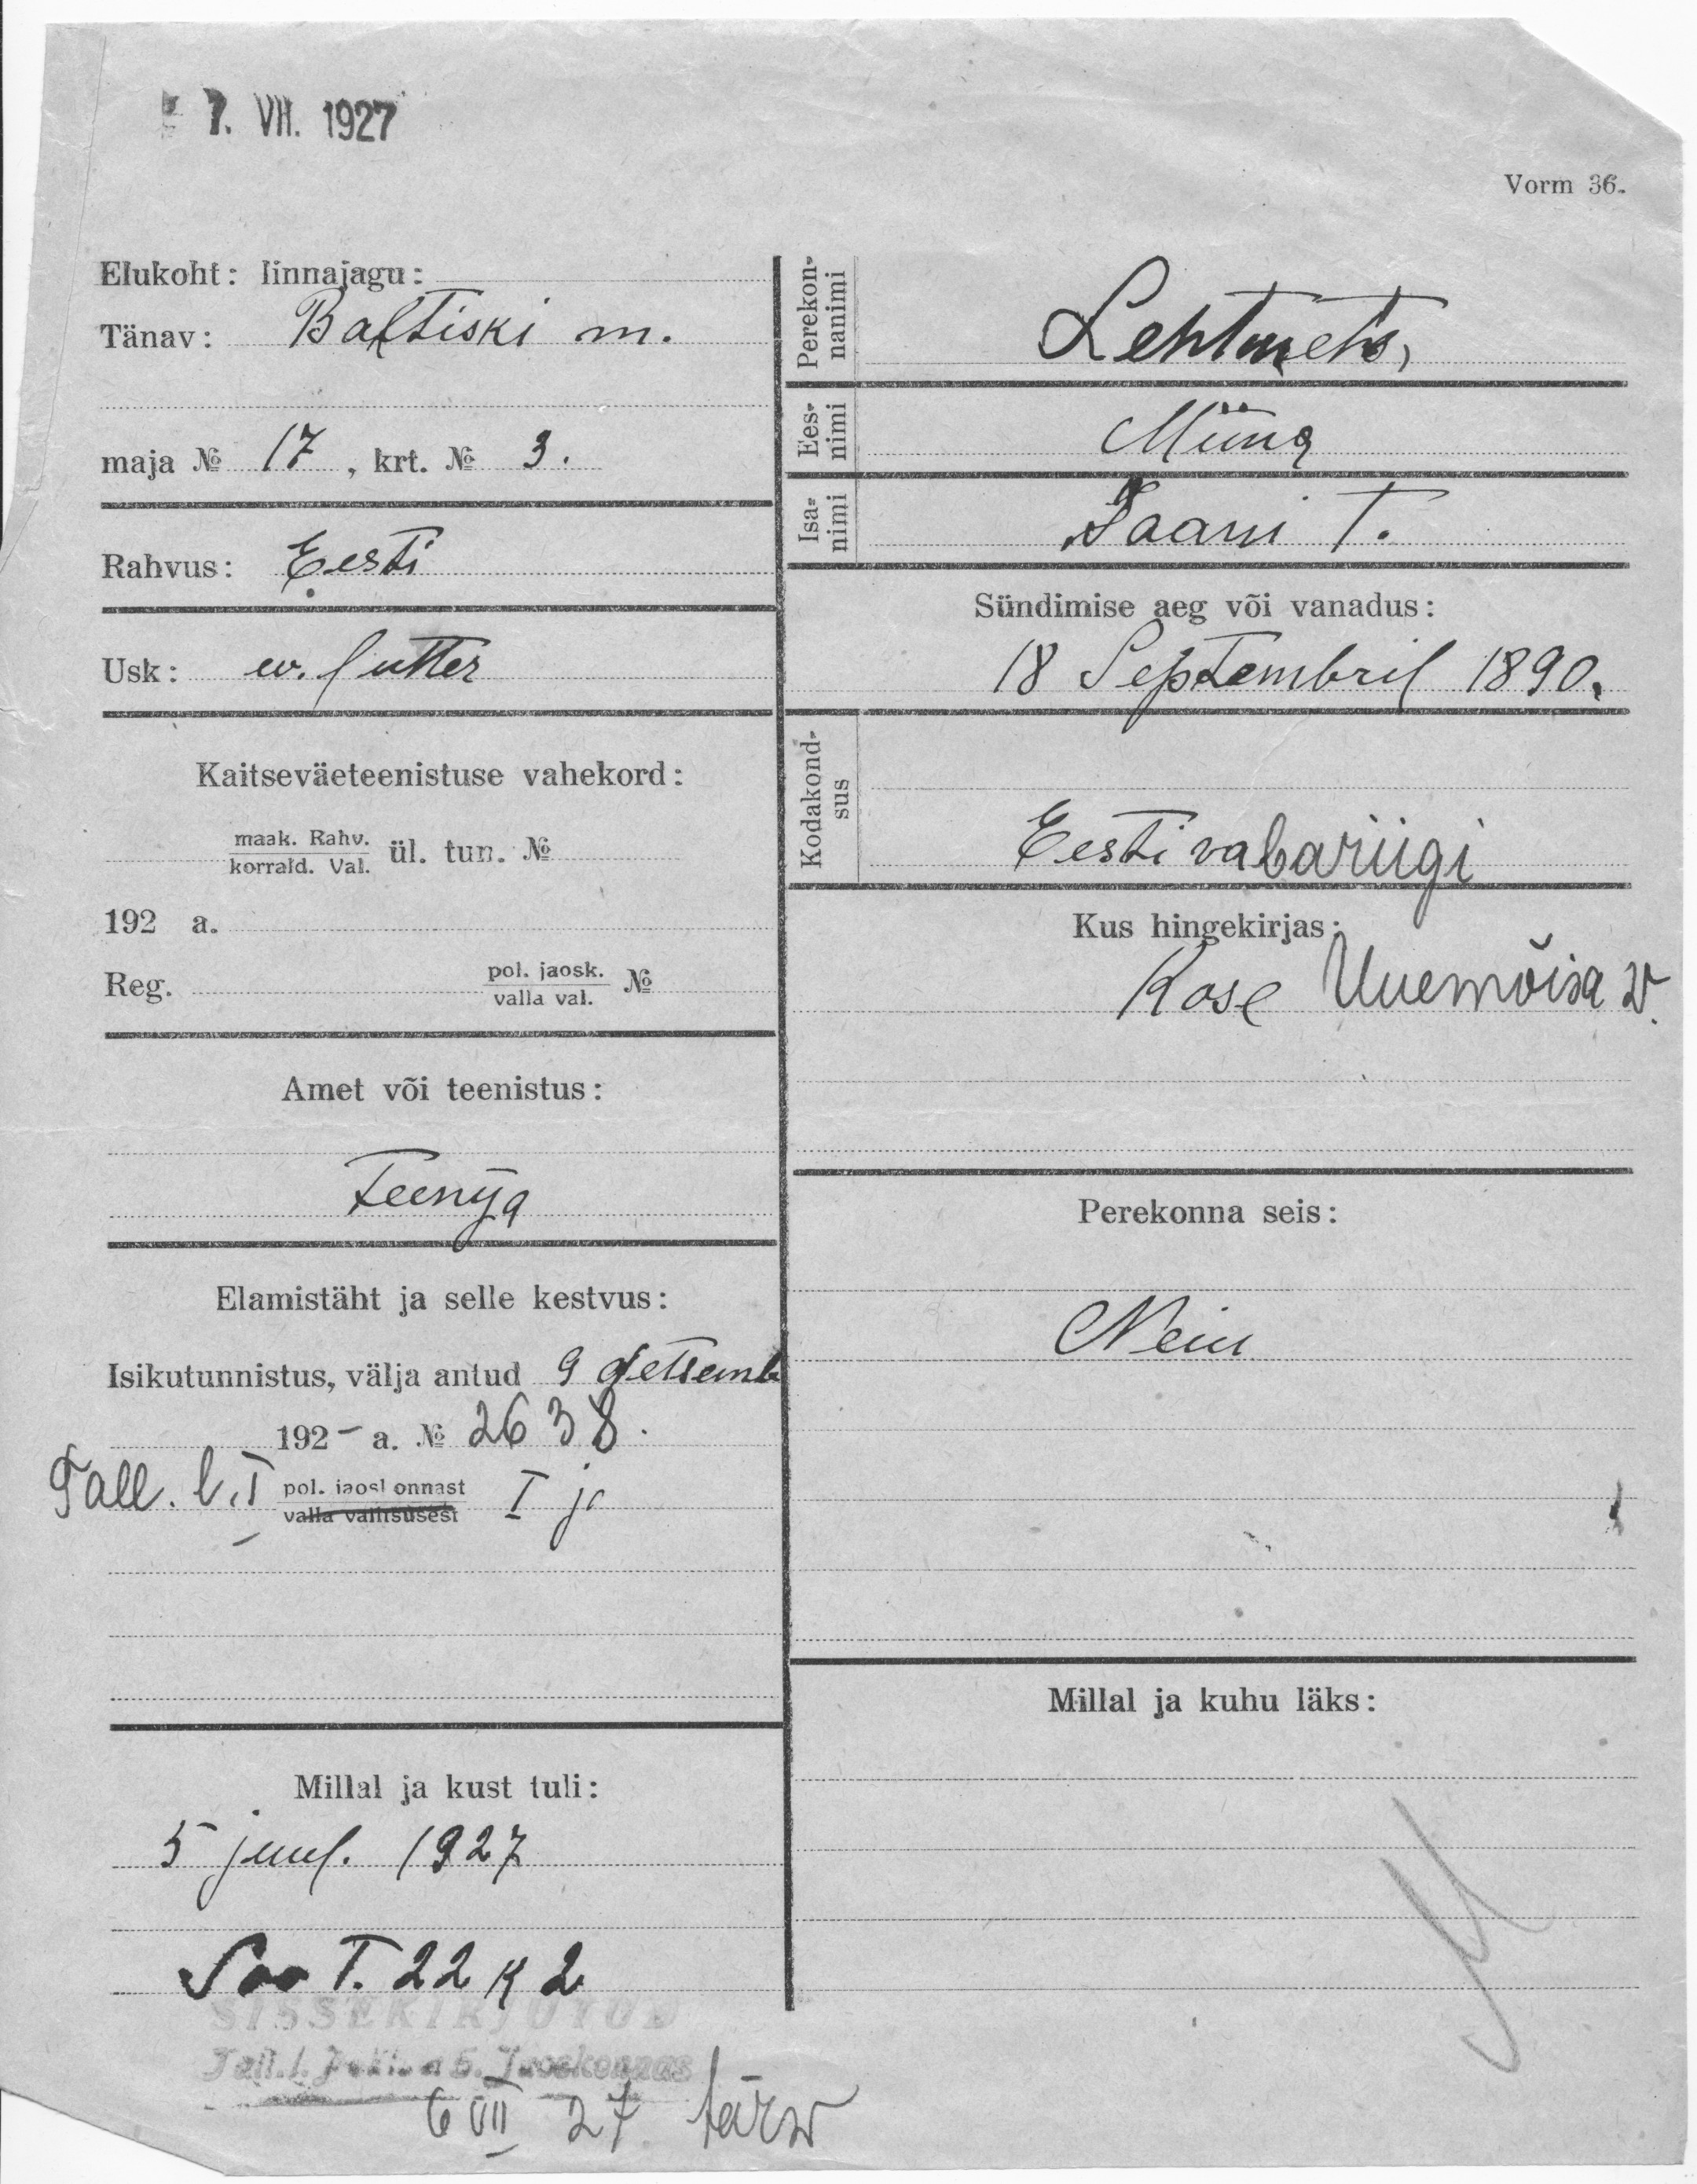 7. VII. 1927
Vorm 36.
Elukoht: linnajagu:
Tänav: Baltiski m.
maja № 17, krt. № 3.
Rahvus: Eesti
Usk: ev. lutter
Kaitseväeteenistuse vahekord:
maak. Rahv.
korrald. Val. ül. tun. №
192 a.
Reg. pol. jaosk.
valla val. №
Amet või teenistus:
Teenija
Elamistäht ja selle kestvus:
Isikutunnistus, välja antud 9 detsemb
192- a. № 2638.
Tall. l. I pol. jaoskonnast I ja
valla valitsusest
Millal ja kust tuli:
5 juul. 1927
Soo T. 22 K 2
SISSEKIRJUTUD
Tall. l. Politsei 5. Jaoskonnas
6 VII 27
Perekon-
nanimi
Lehtmets,
Ees-
nimi
Miina
Isa-
nimi
Jaani T.
Sündimise aeg või vanadus:
18 Septembril 1890.
Kodakond-
sus
Eesti vabariigi
Kus hingekirjas:
Kose Uuemõisa v.
Perekonna seis:
Neiu
Millal ja kuhu läks: